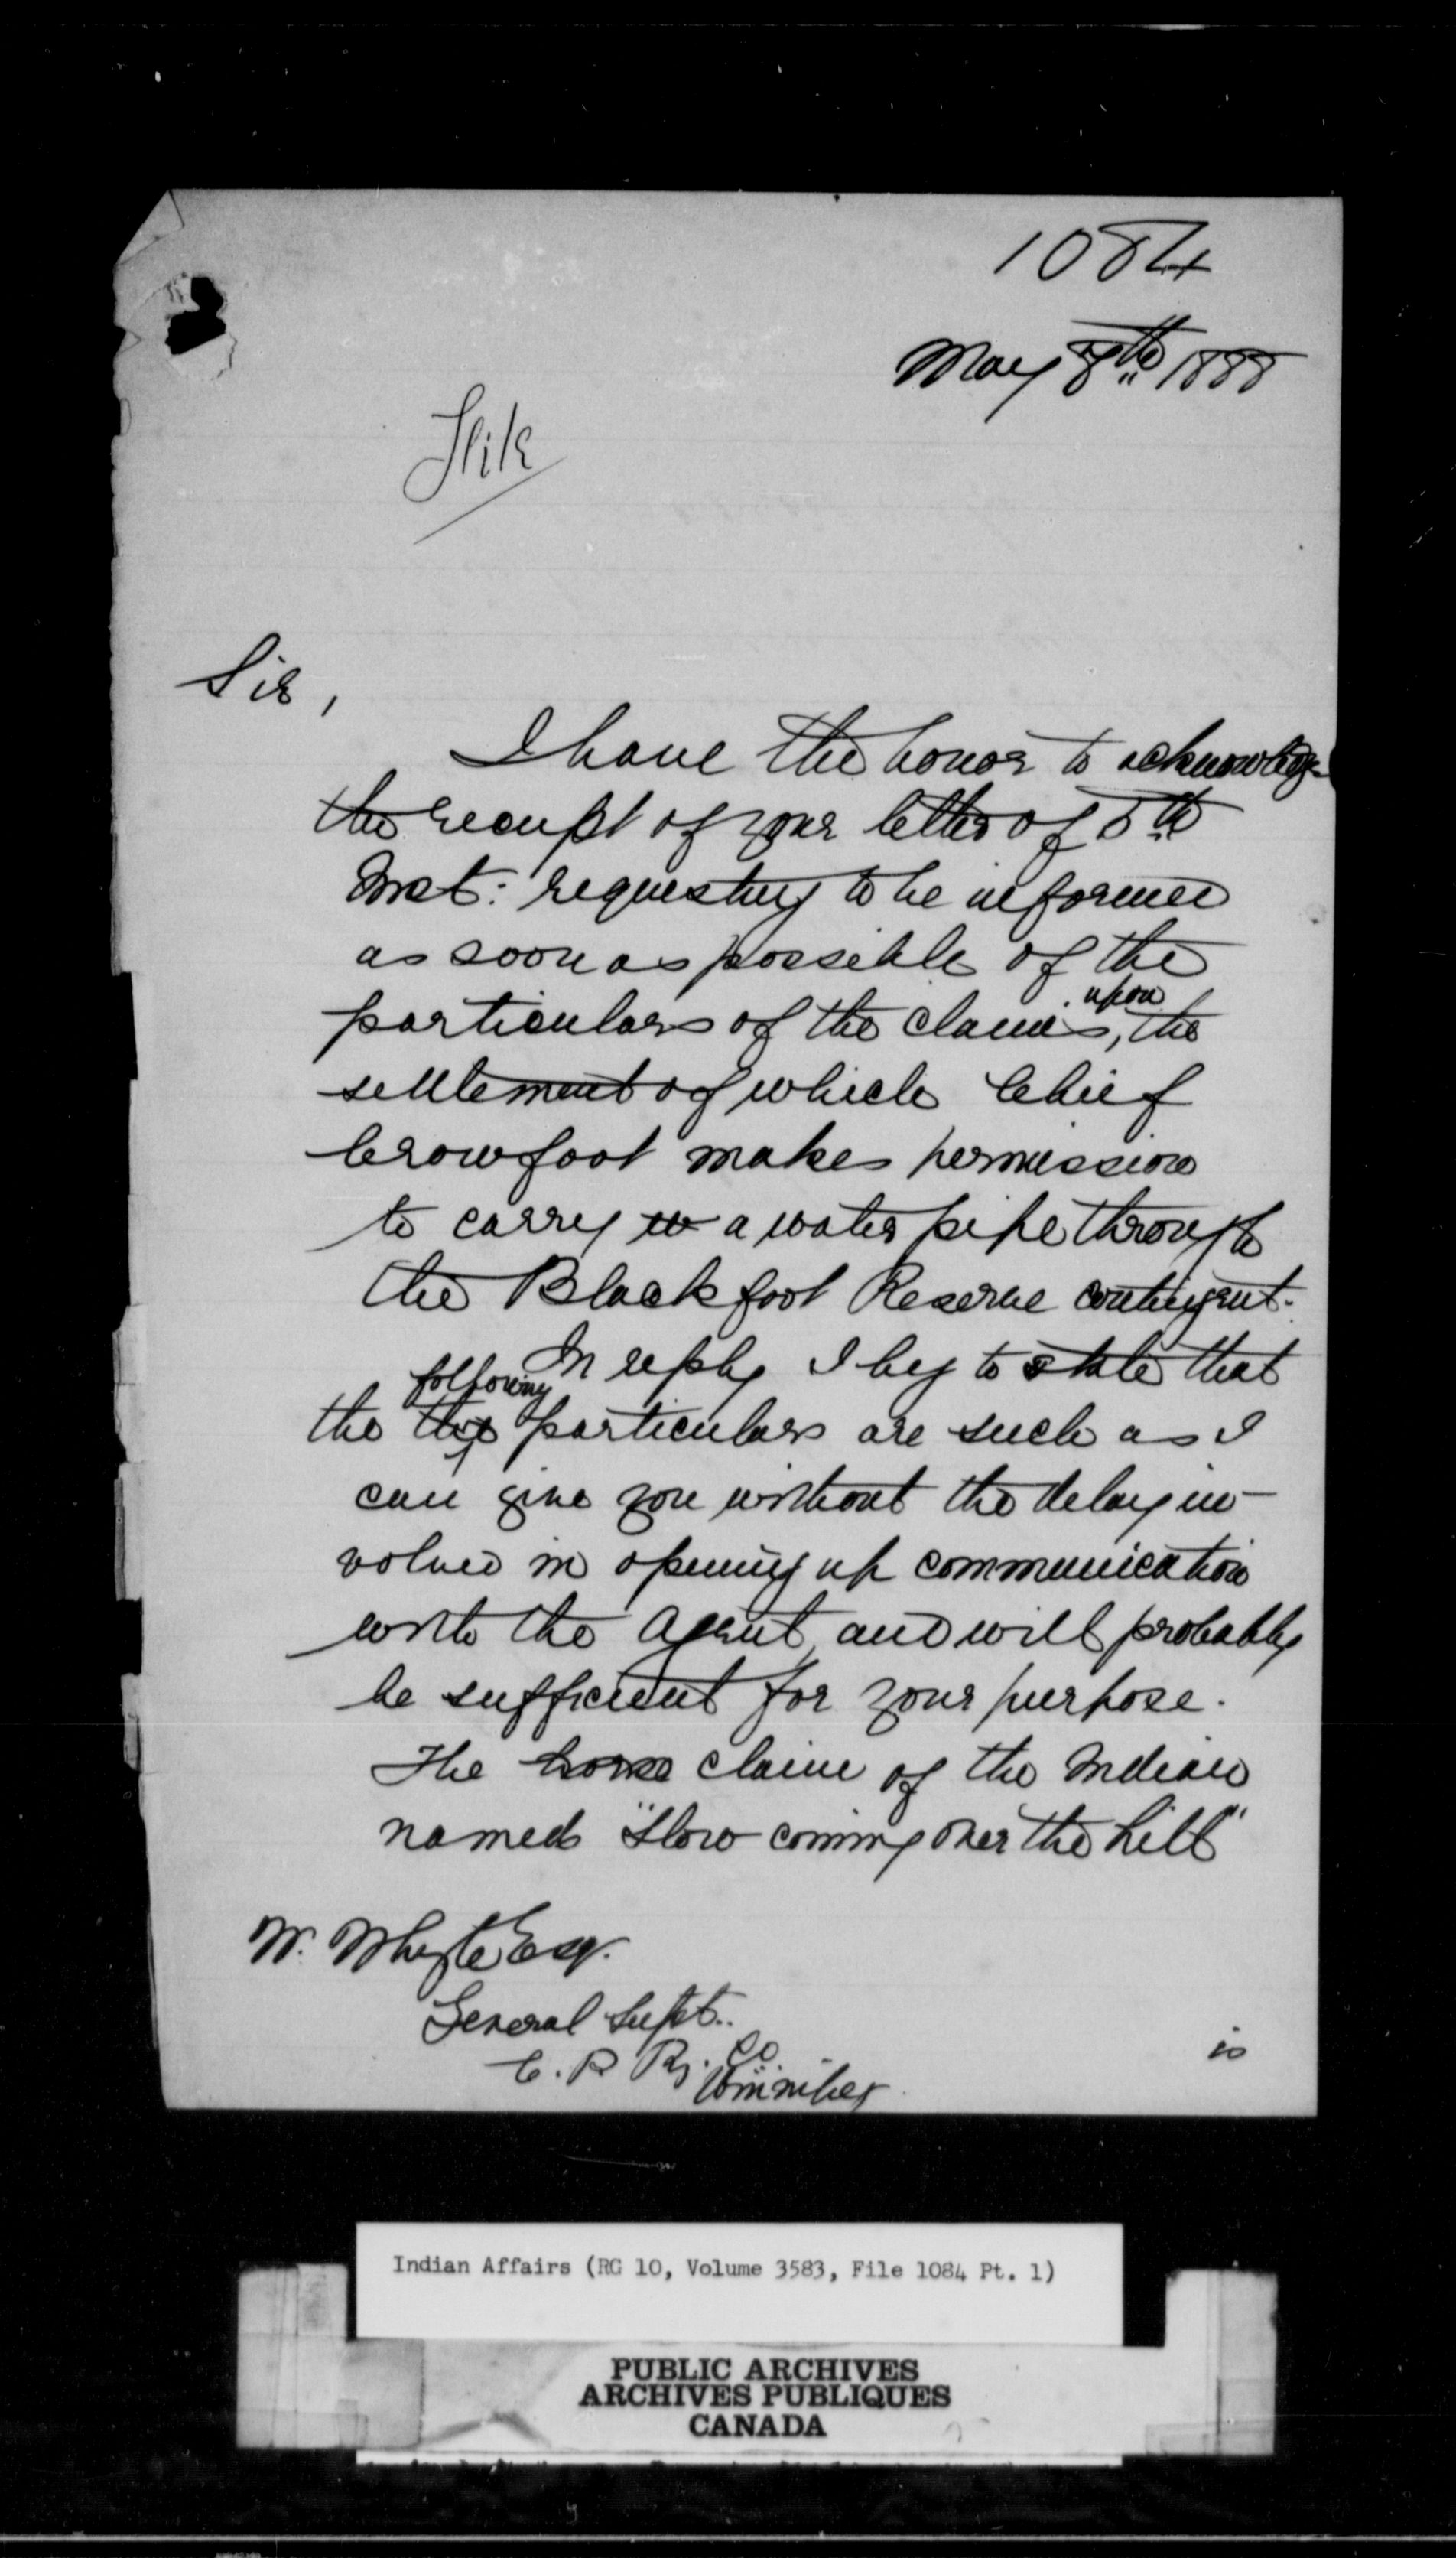 1084
May 8th 1888
Sir,
I have the honor to acknowledge
the receipt of your letter of 5th
Inst: requesting to be informed
as soon as possible of the
upon
particulars of the claims, the
settlement of which Chief
Crowfoot makes permission
to carry a water pipe through
the Blackfoot Reserve contingent.
In reply I beg to state that
following
the particulars are such as I
can give you without the delay in-
volved in opening up communication
with the Agent, and will probably
be sufficient for your purpose.
The horse claim of the Indian
named "Slow coming over the hill"
W. Whyte Esq.
General Supt.
C. P. Ry. Co
Winnipeg
is
Indian Affairs (RG 10, Volume 3583, File 1084 Pt. 1)
PUBLIC ARCHIVES
ARCHIVES PUBLIQUES
CANADA